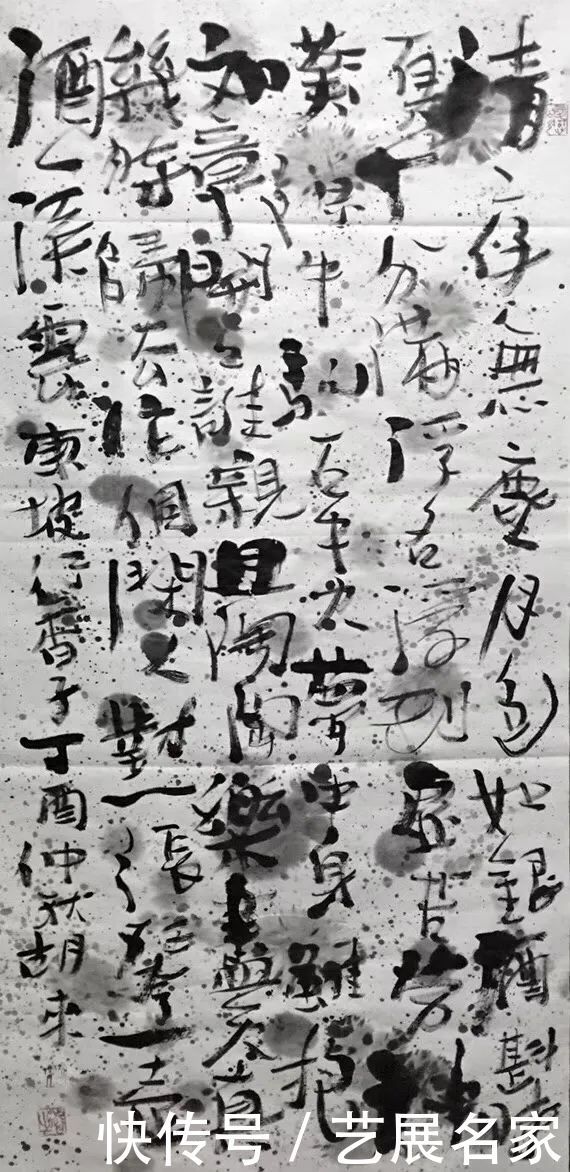 清夜無塵月色如銀酒斟時
須十分滿浮名浮利虛苦勞神
嘆隙中駒石中火夢中身雖抱
文章開口誰親且陶陶樂盡天真
幾時歸去作個閑人對一張琴一壺
酒一溪雲東坡行香子丁酉仲秋胡來
快传号 / 艺展名家